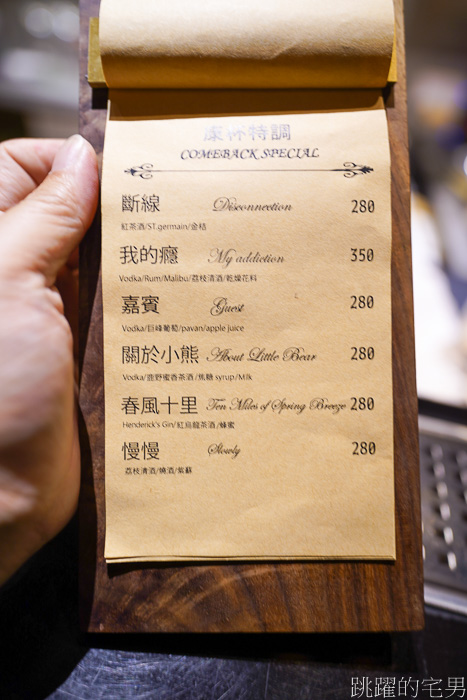 康杯特調
COMEBACK SPECIAL
斷線 Disconnection 280
紅茶酒/ST.germain/金桔
我的癮 My addiction 350
Vodka/Rum/Malibu/荔枝清酒/乾燥花料
嘉賓 Guest 280
Vodka/巨峰葡萄/pavan/apple juice
關於小熊 About Little Bear 280
Vodka/鹿野蜜香茶酒/焦糖 syrup/Milk
春風十里 Ten Miles of Spring Breeze 280
Henderick's Gin/紅烏龍茶酒/蜂蜜
慢慢 Slowly 280
荔枝清酒/燒酒/紫蘇
跳躍的宅男